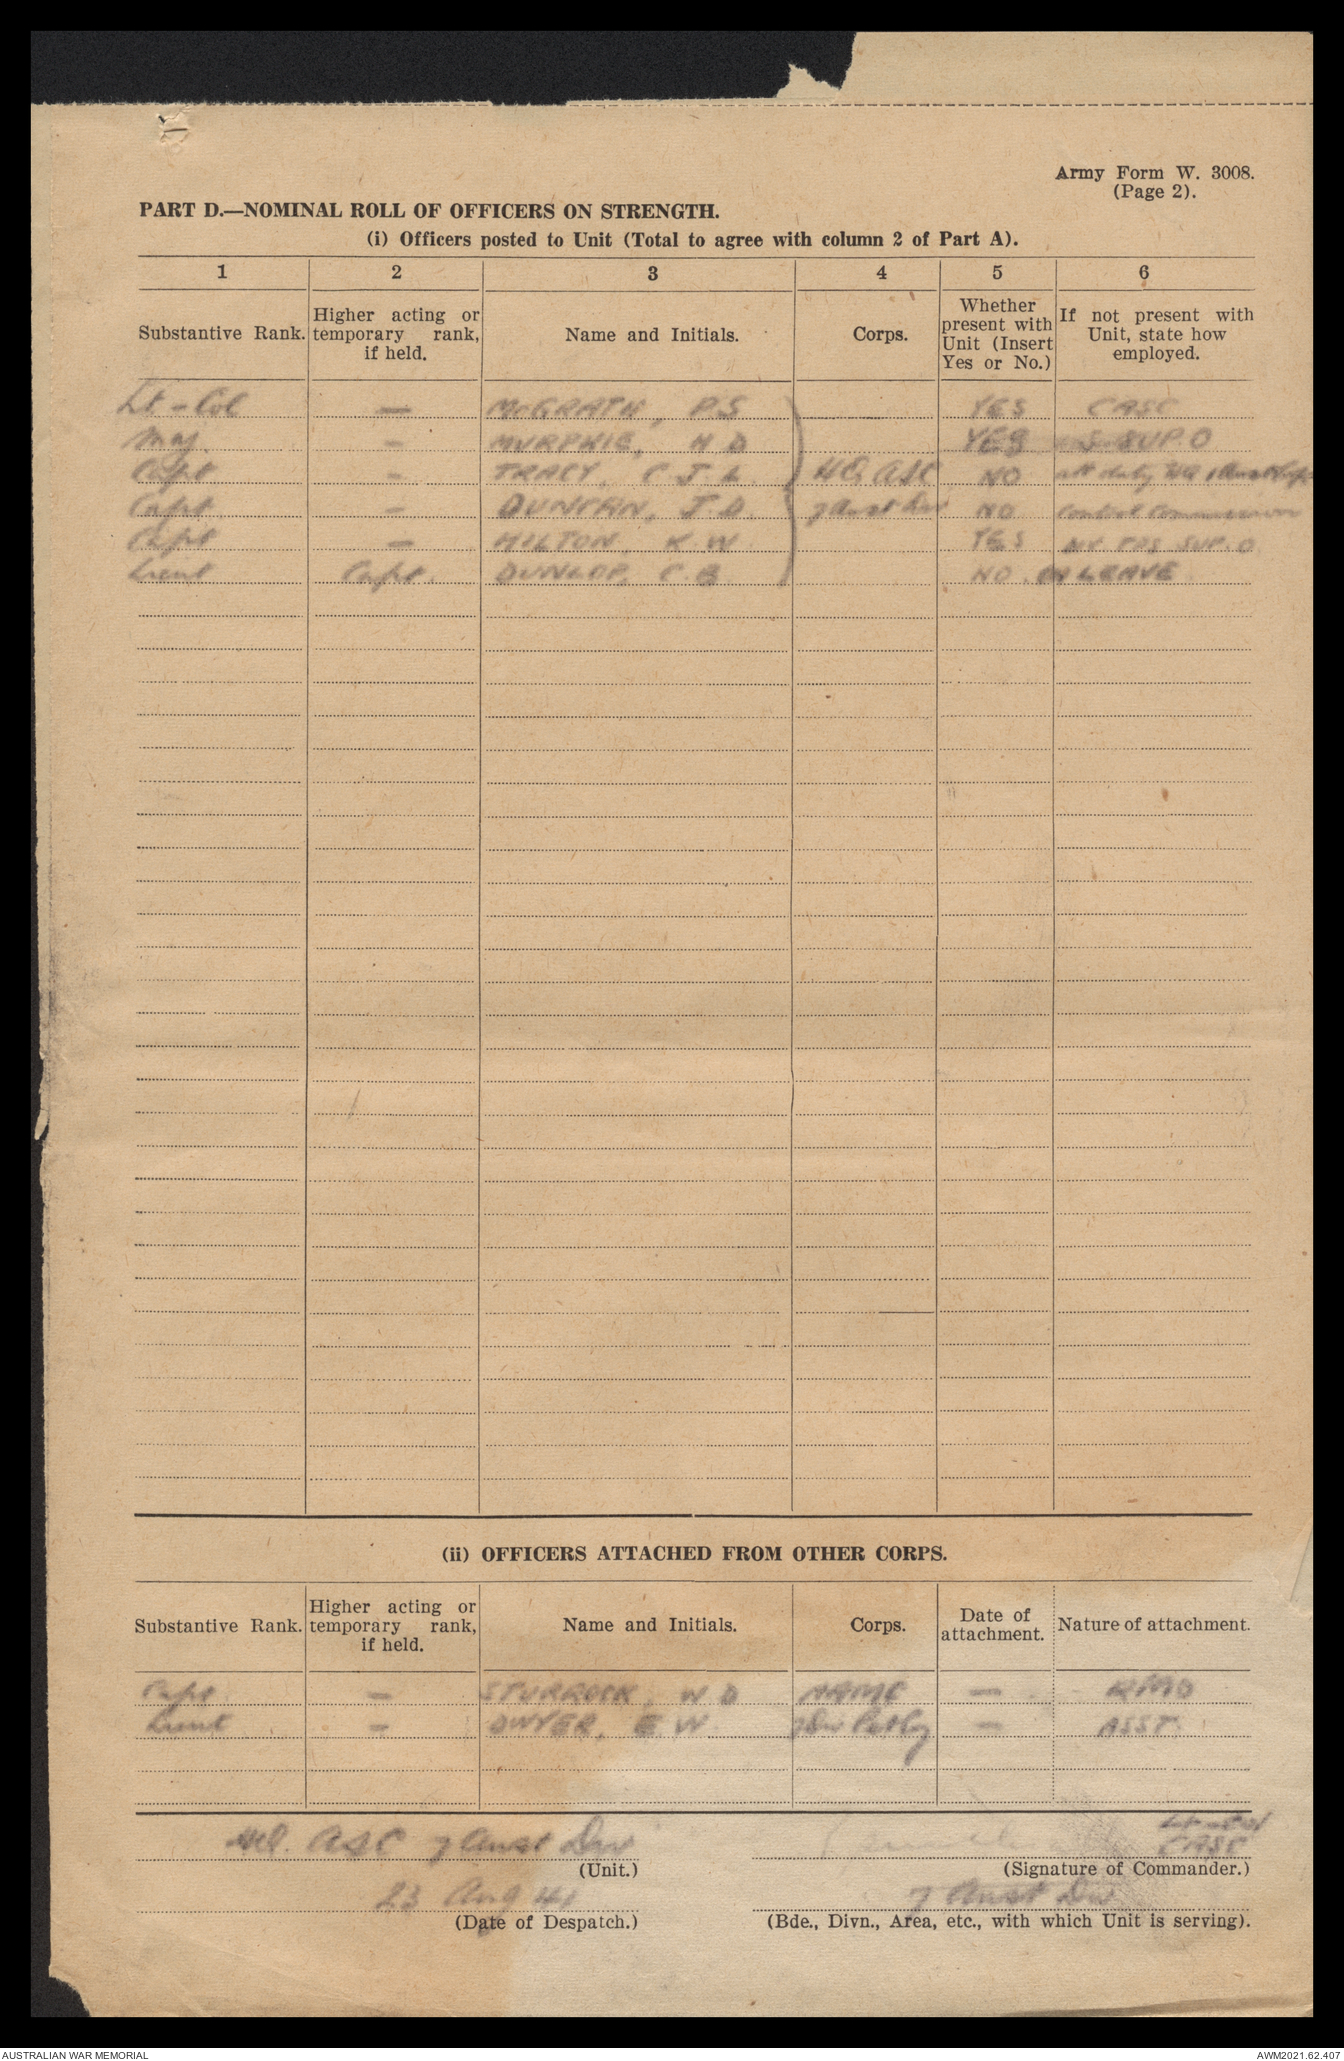 Army Form W. 3008.
(Page 2).
PART D.—NOMINAL ROLL OF OFFICERS ON STRENGTH.
(i) Officers posted to Unit (Total to agree with column 2 of Part A).
1 2 3 4 5 6
Substantive Rank. Higher acting or temporary rank, if held. Name and Initials. Corps. Whether present with Unit (Insert Yes or No.) If not present with Unit, state how employed.
Lt-Col — McGRATH, P.S YES CASC
Maj. - MURPHIE, H D YES S SUP.O
Capt - TRACY, C J L HQ ASC NO att duty HQ 1 Aust Corps
Capt - DUNCAN, J.D. 7 Aust Div NO Control Commission
Capt — HILTON, K W YES SUP. O
Lieut Capt. DUNLOP, C.B NO. ON LEAVE
(ii) OFFICERS ATTACHED FROM OTHER CORPS.
Substantive Rank. Higher acting or temporary rank, if held. Name and Initials. Corps. Date of attachment. Nature of attachment.
Capt — STURROCK, W D AAMC — RMO
Lieut — DWYER, E W. 7 Div — ASST.
HQ. ASC 7 Aust Div Lt-Col
CASC
(Unit.) (Signature of Commander.)
23 Aug 41 7 Aust Div
(Date of Despatch.) (Bde., Divn., Area, etc., with which Unit is serving).
AUSTRALIAN WAR MEMORIAL AWM2021.62.407